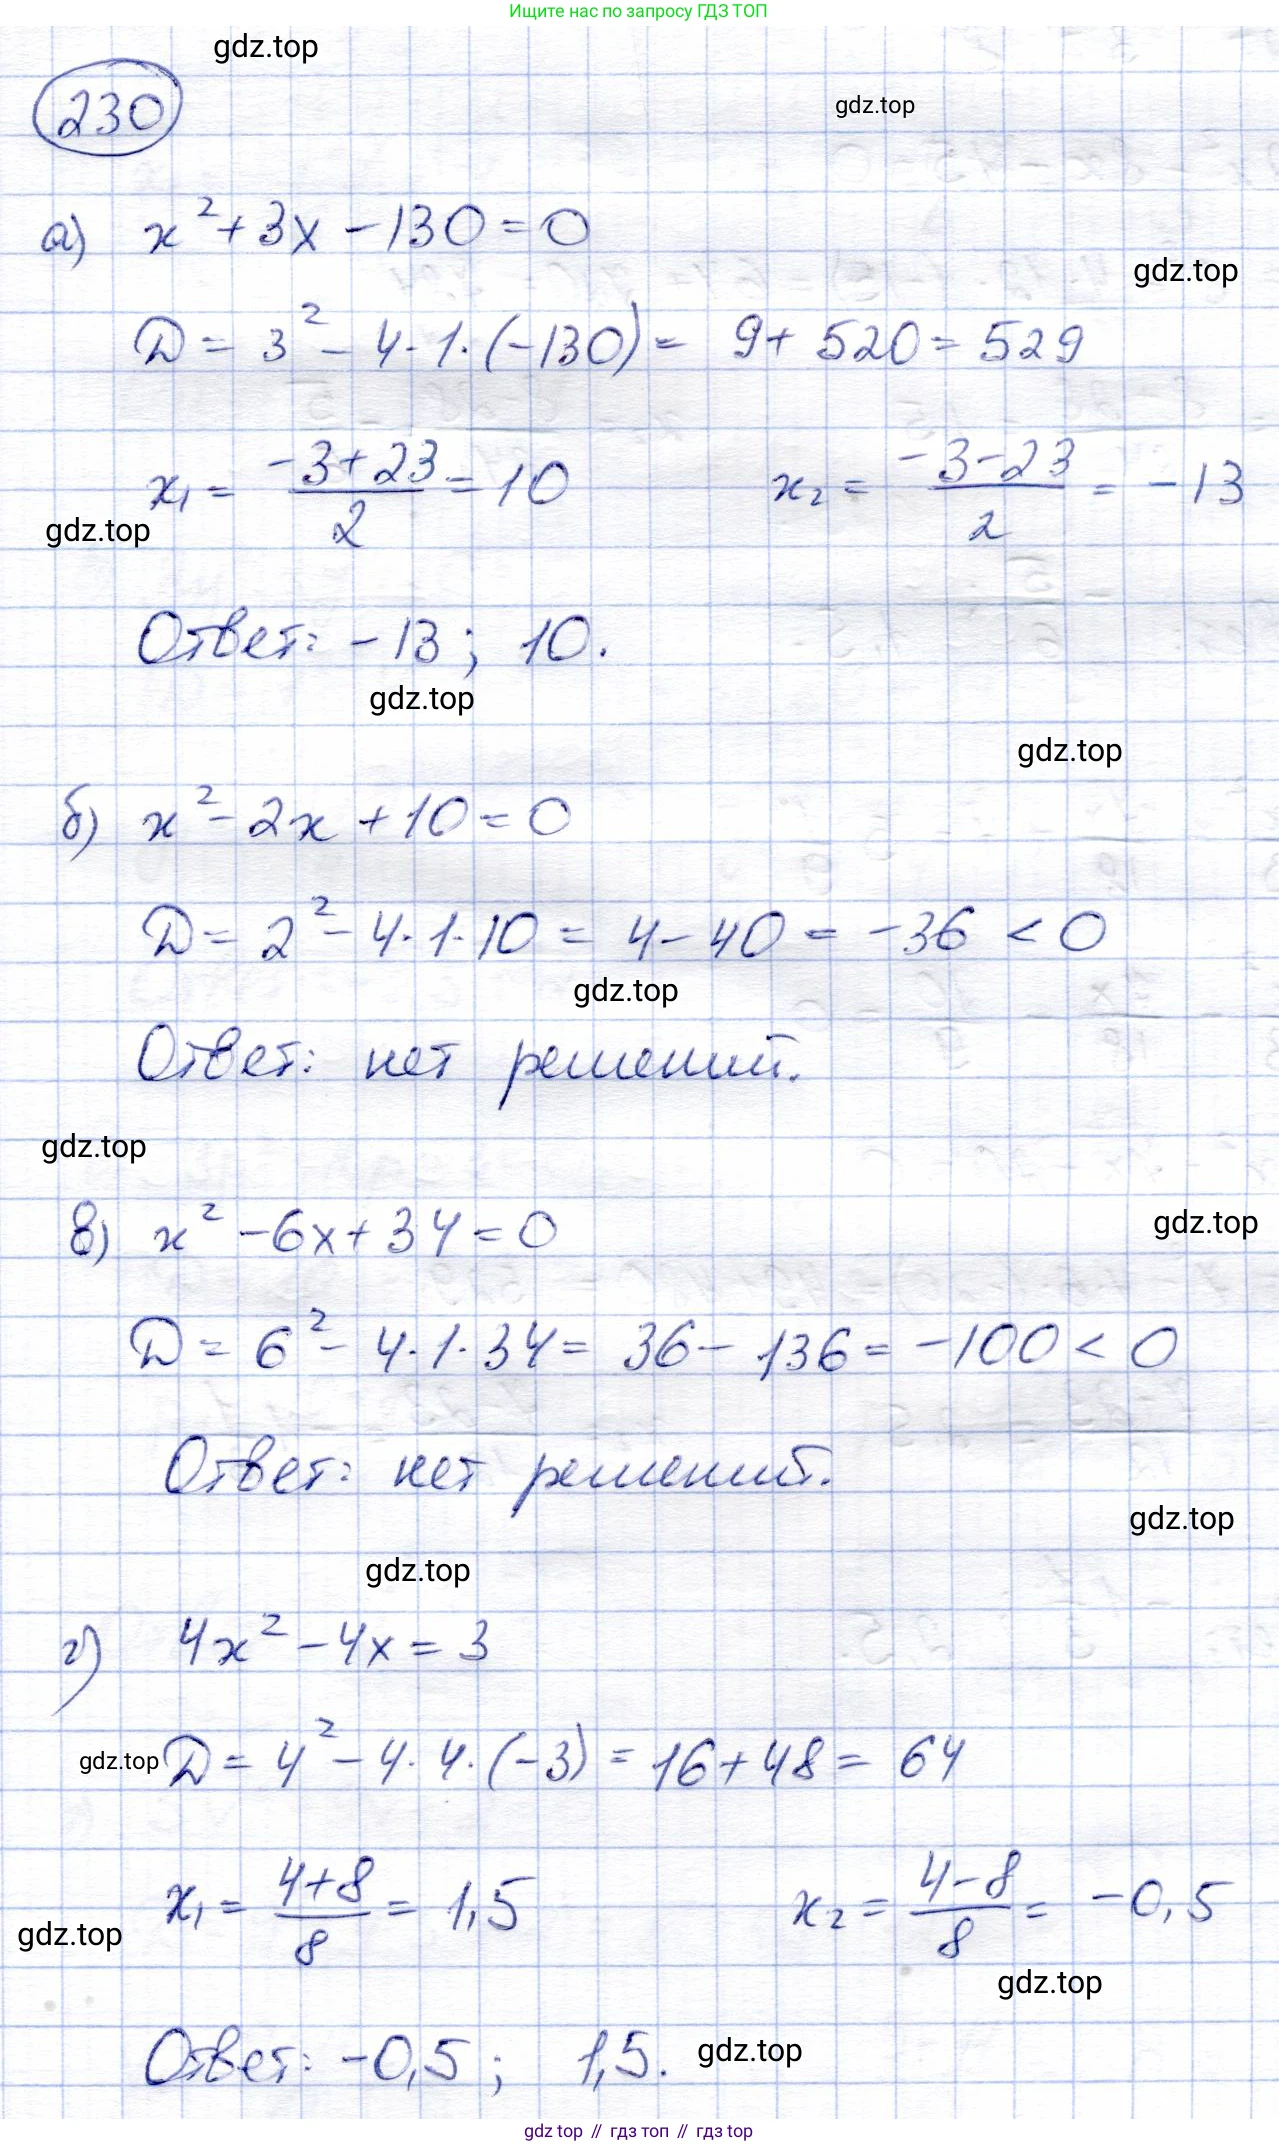 Ищите нас по запросу ГДЗ ТОП
gdz.top
230
gdz.top
а) x² + 3x - 130 = 0
gdz.top
D = 3² - 4·1·(-130) = 9 + 520 = 529
x₁ = (-3+23)/2 = 10 x₂ = (-3-23)/2 = -13
gdz.top
Ответ: -13; 10.
gdz.top
gdz.top
б) x² - 2x + 10 = 0
D = 2² - 4·1·10 = 4 - 40 = -36 < 0
gdz.top
Ответ: нет решений.
gdz.top
в) x² - 6x + 34 = 0
gdz.top
D = 6² - 4·1·34 = 36 - 136 = -100 < 0
Ответ: нет решений.
gdz.top
gdz.top
г) 4x² - 4x = 3
gdz.top D = 4² - 4·4·(-3) = 16 + 48 = 64
x₁ = (4+8)/8 = 1,5 x₂ = (4-8)/8 = -0,5
gdz.top
gdz.top
Ответ: -0,5; 1,5. gdz.top
gdz top // гдз топ // gdz top